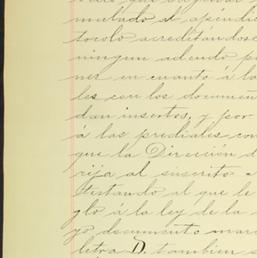 mulado el apéndi
tocolo acreditándose
ningun adeudo p
ner en cuanto á la
les con los documen
dan insertos, y por
á las prediales con
que la Direccion d
rija al suscrito a
testando al que le
glo á la ley de la
yo documento marc
letra D. tambien s